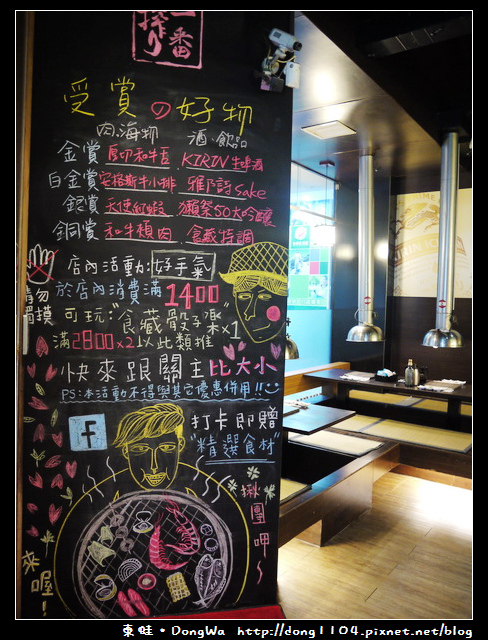 一番
搾り
受賞の好物
肉.海物 酒.飲品
金賞 厚切和牛舌、KIRIN生啤酒
白金賞 安格斯牛小排 雅乃詩sake
銀賞 天使紅蝦、獺祭50大吟釀
銅賞 和牛橫肉、食藏特調
店內活動:好手氣
請勿觸摸
於店內消費滿1400
可玩:"食藏骰子樂"x1
滿2800x2以此類推
快來跟關主比大小
PS:本活動不得與其它優惠併用!!
f
打卡即贈
"精選食材"
揪團呷~
來喔!
東蛙·DongWa http://dong1104.pixnet.net/blog